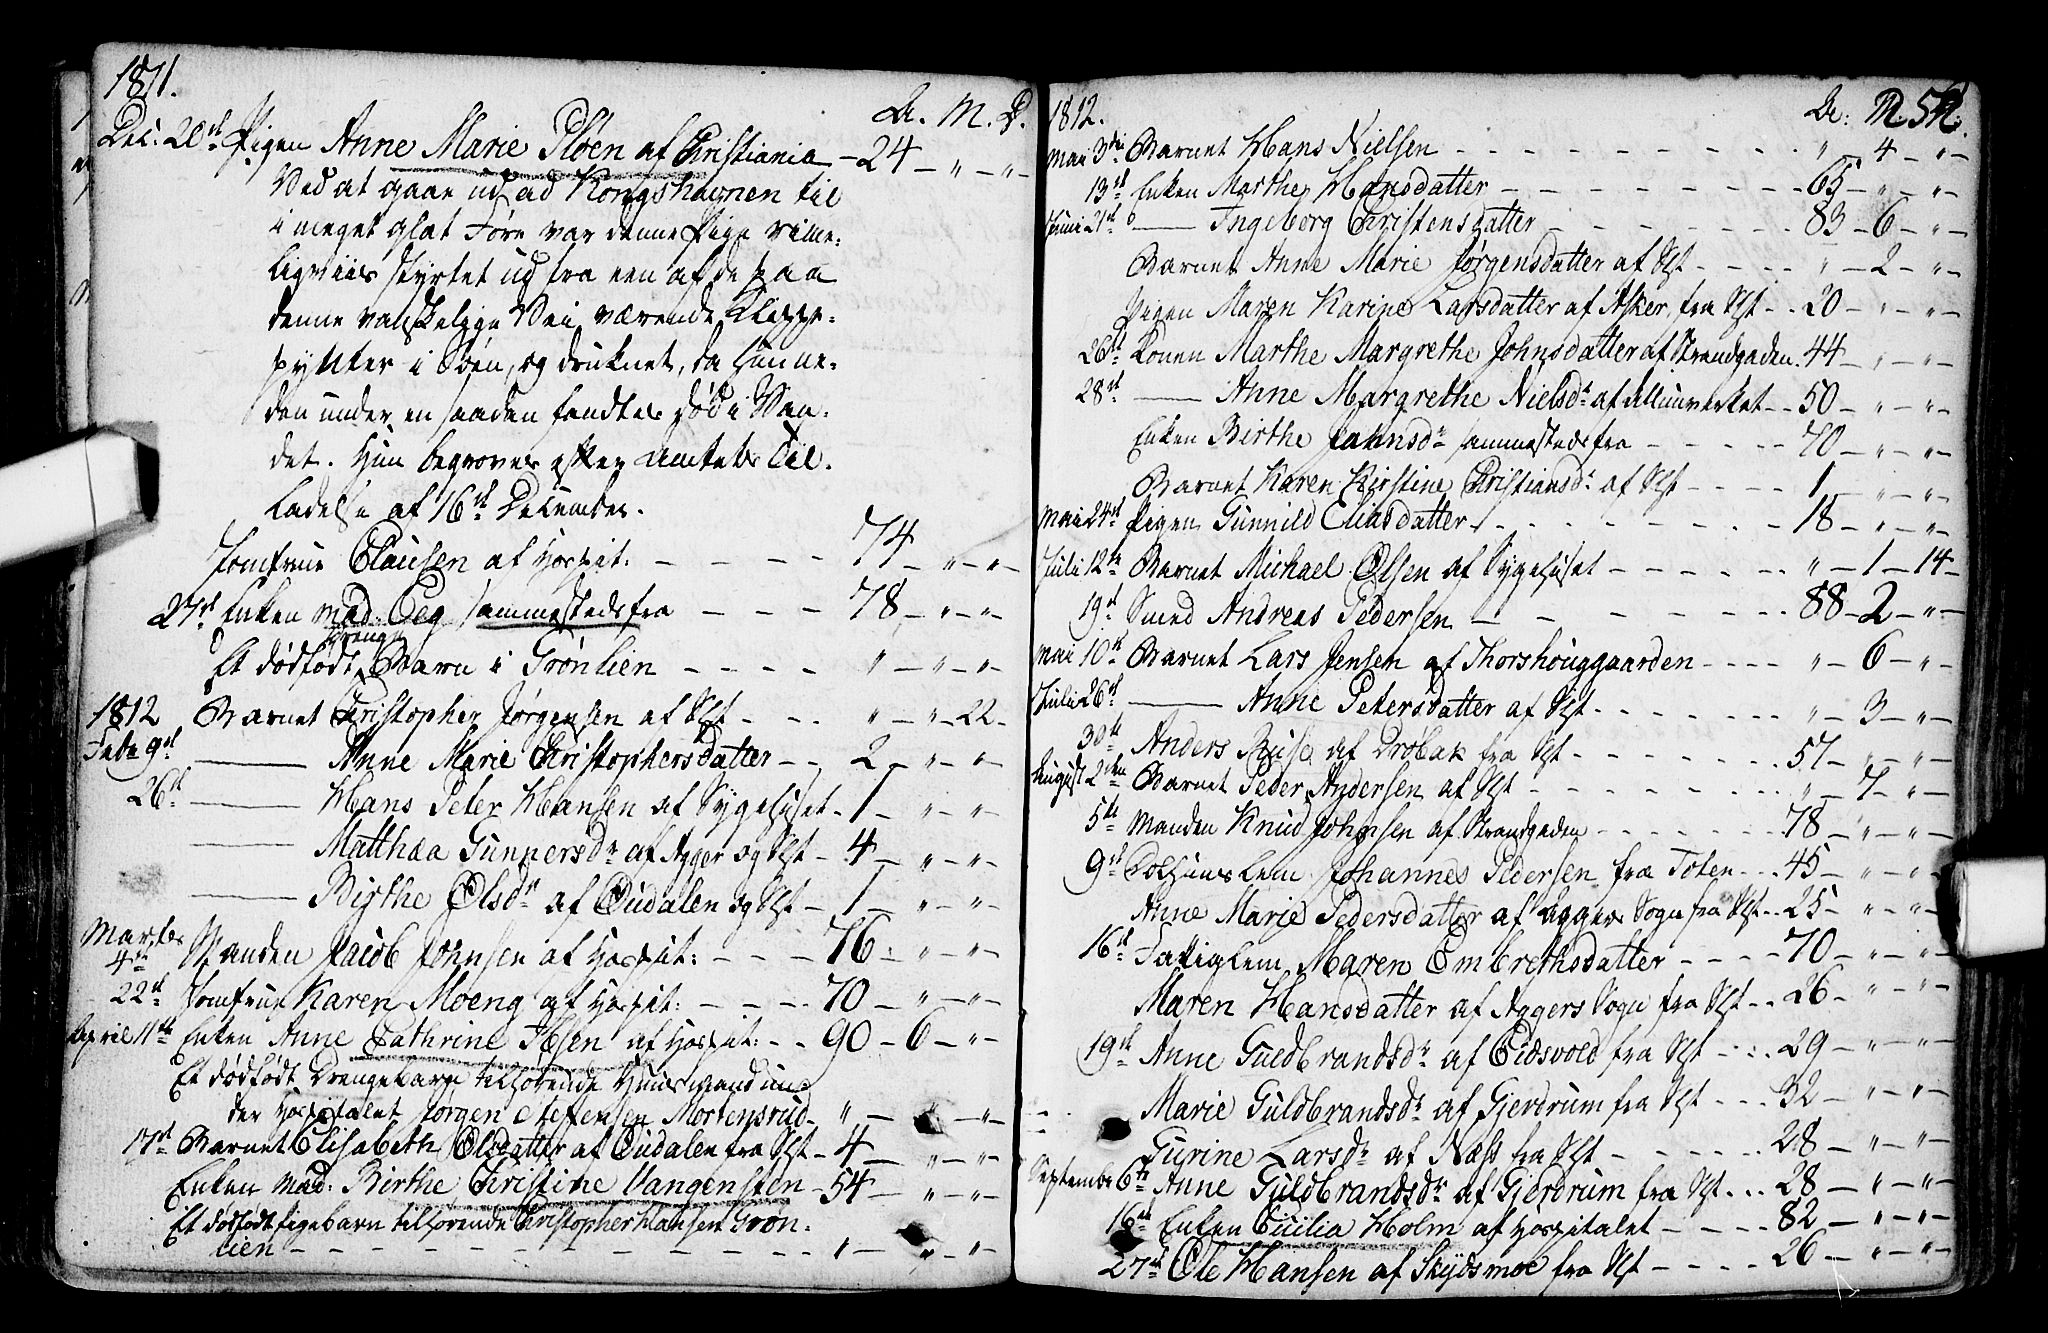 1811.
A. M. D.
Dec: 20de Pigen Anne Marie Pløen af Christiania – 24 – " – " –
Ved at gaae ud ad Kongshavnen til
i meget glat Føre var denne Pige rime-
ligviis styrtet ud fra een af de paa
denne vanskelige Vei værende Kleppe-
pynter i Søen, og druknet, da Hun ne-
den under en saadan fandtes død i Van-
det. Hun begroves efter Amtets Til-
ladelse af 16de December.
Jomfrue Clausen af Hospit: – – – – 74 – " – " –
27de Enken Mad. Eeg sammestedsfra – – – 78 – " – " –
Et dødfødt Drenge Barn i Grønlien – – – – " – " – " –
1812 Barnet Christopher Jørgensen af Slst – – – " – " – 22 –
Febr 9de ——— Anne Marie Christophersdatter – – 2 – " – " –
26de ——— Hans Peter Hansen af Sygehuset – 1 – " – " –
——— Matthæa Gunnersdr af Agger og Slst – 4 – " – " –
——— Birthe Olsdr af Oudalen og Slst – 1 – " – " –
Marts
4de Manden Jacob Johnsen af Hospit: – – – 76 – " – " –
22de Jomfrue Karen Moeng af Hospit: – – – 70 – " – " –
April 11te Enken Anne Cathrine Ibsen af Hospit: – – 90 – 6 – " –
Et dødfødt Drengebarn tilhørende Huusmand un-
der Hospitalet Jørgen Steffensen Mortensrud – " – " – " –
17de Barnet Elisabeth Olsdatter af Oudalen fra Slst – 4 – " – " –
Enken Mad: Birthe Christine Vangensten – 54 – " – " –
Et dødfødt Pigebarn tilhørende Christopher Hansen Grøn-
lien – – – – – – – – – – – " – " – " –
1812.
A: M. D.
Mai 3die Barnet Hans Nielsen – – – – – – – – " – 4 – " –
13de Enken Marthe Hansdatter – – – – – – – 65 – " – " –
Juni 21de ——— Ingeborg Christensdatter – – – – – – 83 – 6 – " –
Barnet Anne Marie Jørgensdatter af Slst – – – – " – 2 – " –
Pigen Maren Karine Larsdatter af Asker, fra Slst – – 20 – " – " –
26de Konen Marthe Margrethe Johnsdatter af Strandgaden – 44 – " – " –
28de ——— Anne Margrethe Nielsdr af Allunverket – – 50 – " – " –
Enken Birthe Johnsdr sammestedsfra – – – – – 70 – " – " –
Barnet Karen Kirstine Christiansdr af Slst – – – – 1 – " – " –
Mai 24de Pigen Gunnild Eliasdatter – – – – – – – 18 – " – " –
Juli 12te Barnet Michael Olsen af Sygehuset – – – – – " – 1 – 14 –
19de Smed Andreas Pedersen – – – – – – 88 – 2 – " –
Mai 10de Barnet Lars Jensen af Thorshouggaarden – – – – " – 6 – " –
Juli 26de ——— Anne Petersdatter af Slst – – – – – – " – 3 – " –
30te Anders Buse af Drøbak fra Slst – – – – – – 57 – " – " –
August 2den Barnet Peder Andersen af Slst – – – – – – " – 7 – " –
5te Manden Knud Johnsen af Strandgaden – – – – – 78 – " – " –
9de Tolhuuslem Johannes Pedersen fra Toten – – – 45 – " – " –
Anne Marie Pedersdatter af Aggers Sogn fra Slst – – 25 – " – " –
16de Fattiglem Maren Embrethsdatter – – – – 70 – " – " –
Maren Hansdatter af Aggers Sogn fra Slst – – 26 – " – " –
19de Anne Guldbrandsdr af Eidsvold fra Slst – – – 29 – " – " –
Marie Guldbrandsdr af Gjerdrum fra Slst – – – 32 – " – " –
Gurine Larsdr af Næss fra Slst – – – – – – 28 – " – " –
September 6te Anne Guldbrandsdr af Gjerdrum fra Slst – – – 28 – " – " –
16de Enken Cicilia Holm af Hospitalet – – – – – 82 – " – " –
27de Ole Hansen af Skydsmoe fra Slst – – – – 26 – " – " –